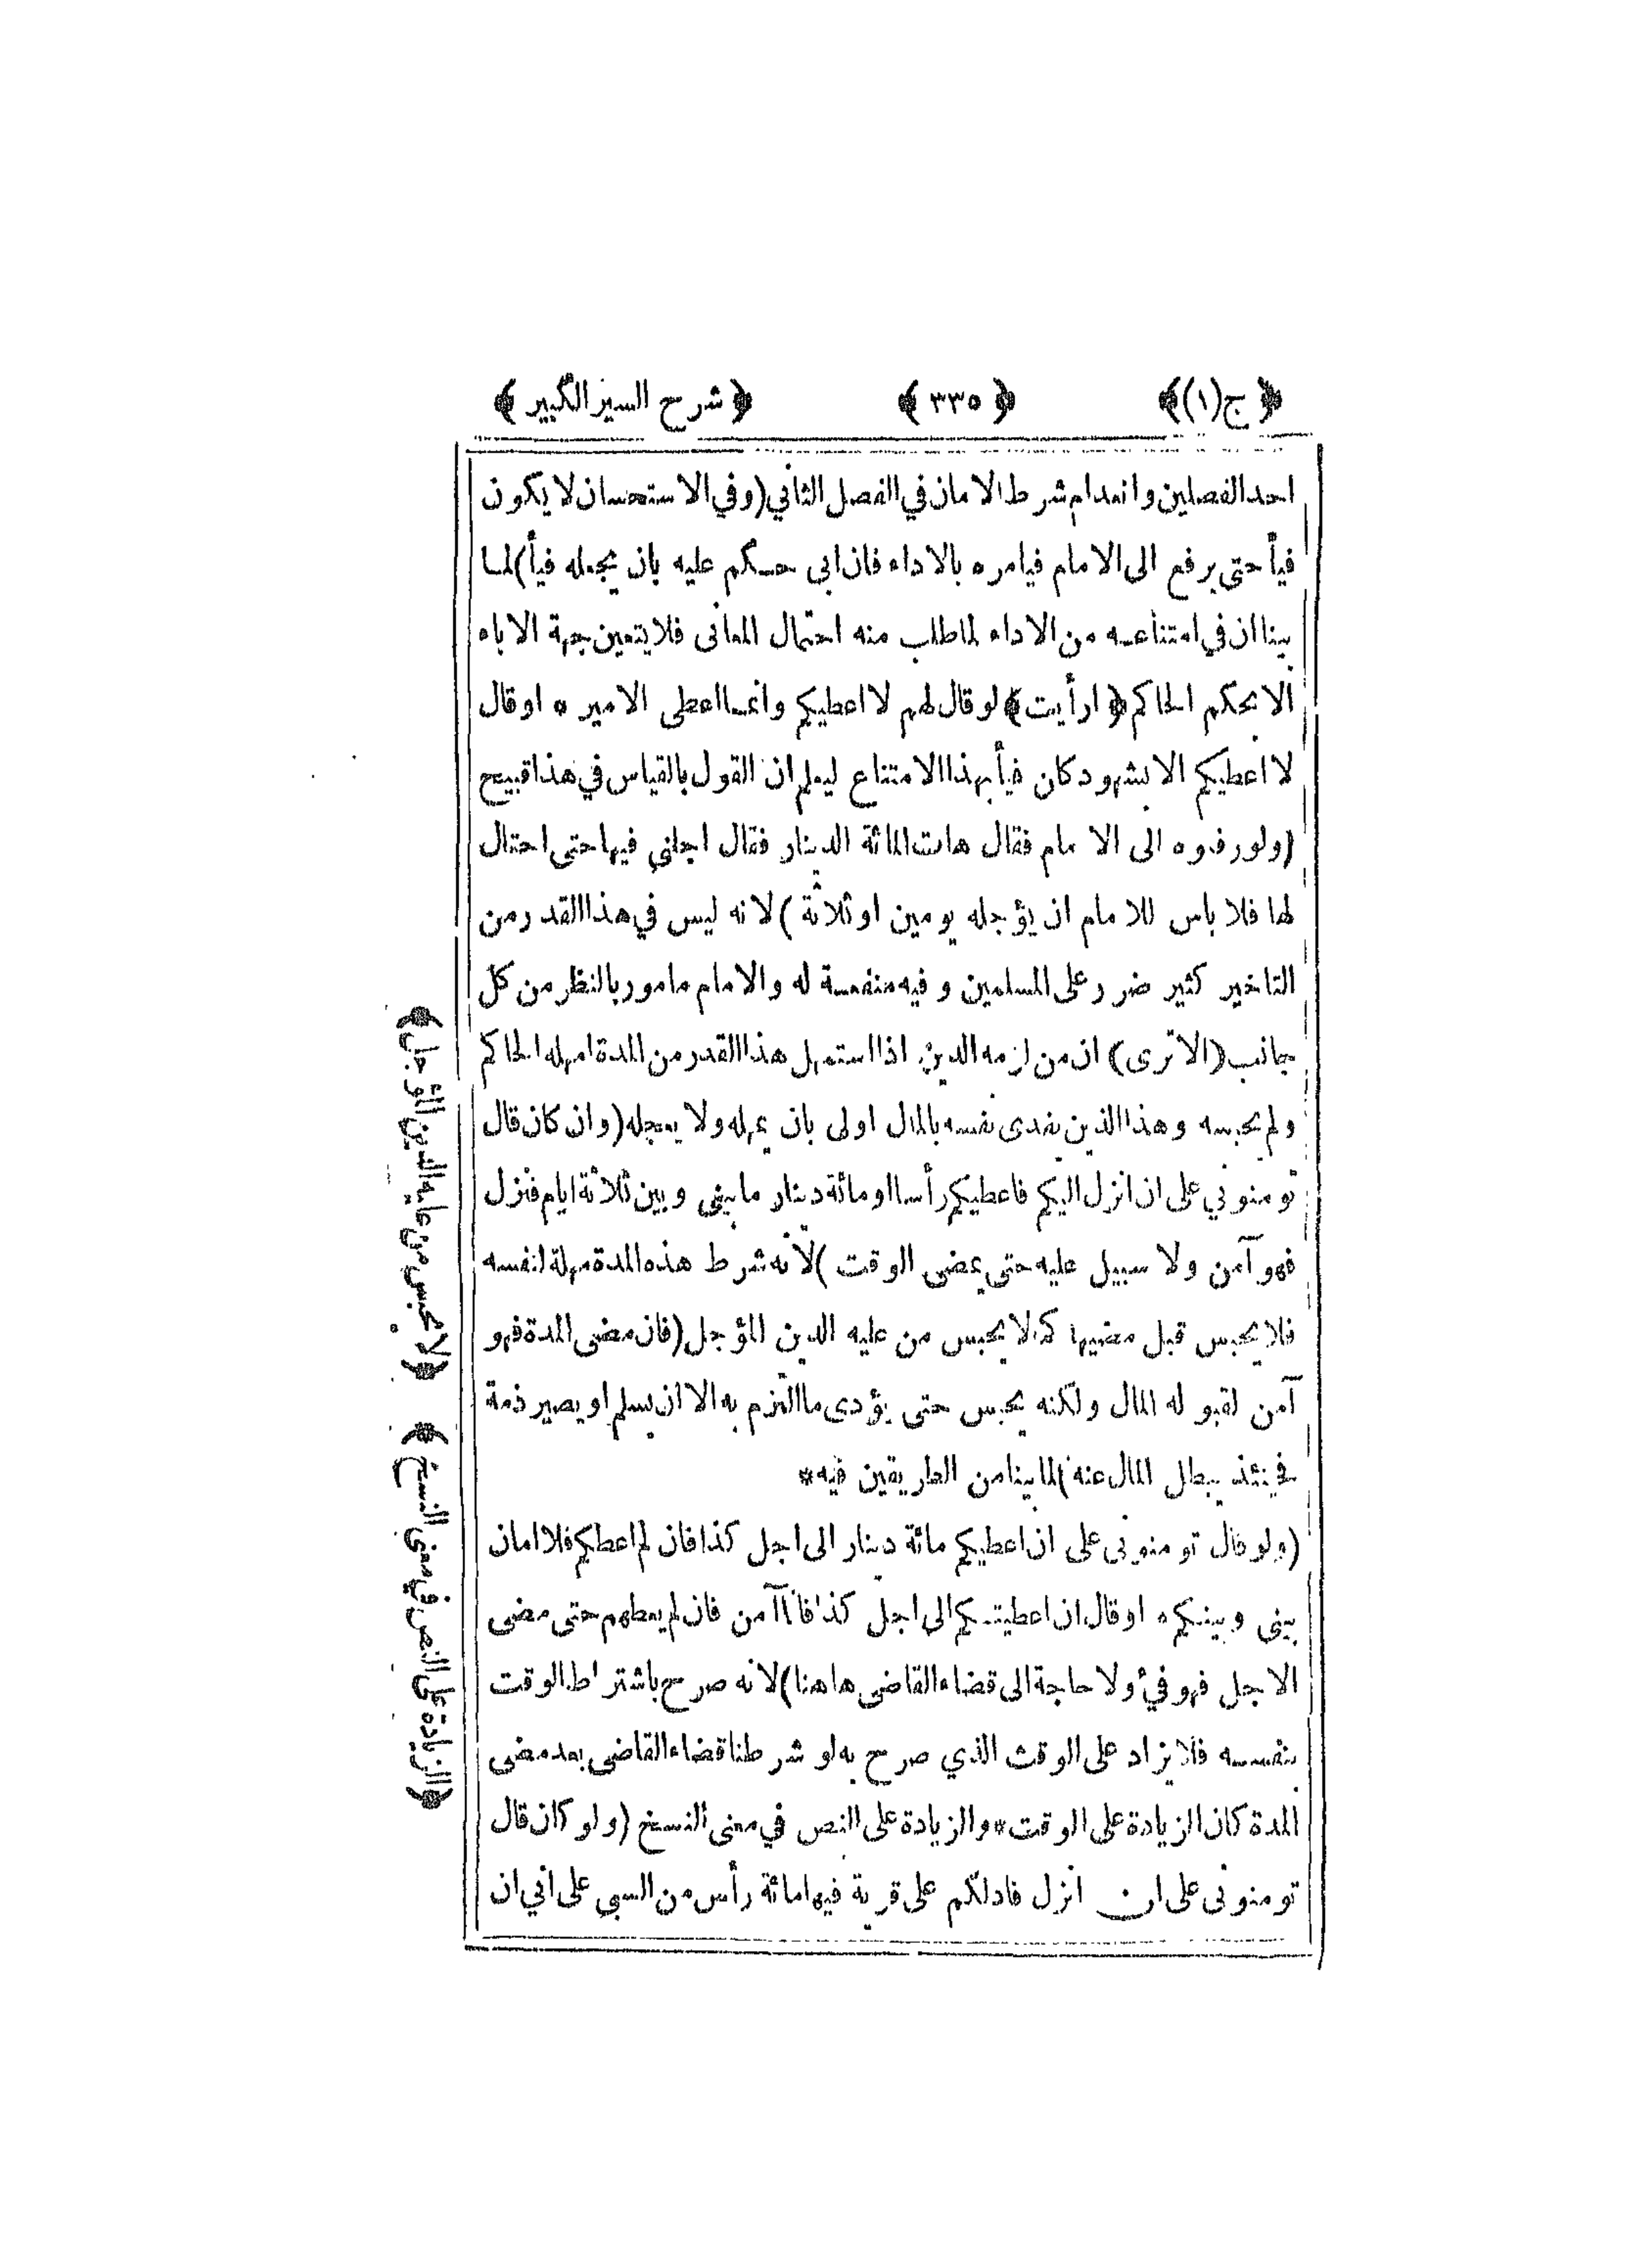 ﴿ ج(١) ﴾ ﴿ ٣٣٥ ﴾ ﴿ شرح السير الكبير ﴾
احد الفصلين وانعدام شرط الامان في الفصل الثاني (وفي الاستحسان لا يكون
فيأ حتى يرفع الى الامام فيامره بالاداء فان ابى حكم عليه بان يجعله فيأ) لما
بينا ان في امتناعه من الاداء لما طلب منه احتمال المعانى فلا يتعين جهة الاباء
الا بحكم الحاكم ﴿ ارأيت ﴾ لو قال لهم لا اعطيكم وانما اعطى الامير * او قال
لا اعطيكم الا بشهود كان فيأ بهذا الامتناع ليعلم ان القول بالقياس في هذا قبيح
(ولو رفعوه الى الامام فقال هات المائة الدينار فقال اجلنى فيها حتى احتال
لها فلا باس للامام ان يؤجله يومين او ثلاثة) لانه ليس في هذا القدر من
التاخير كثير ضرر على المسلمين وفيه منفعة له والامام مامور بالنظر من كل
جانب (الا ترى) ان من لزمه الدين اذا استمهل هذا القدر من المدة امهله الحاكم
ولم يحبسه وهذا الذين يفدى نفسه بالمال اولى بان يمهله ولا يعجله (وان كان قال
تومنوني على ان انزل اليكم فاعطيكم رأسا او مائة دينار ما بينى وبين ثلاثة ايام فنزل
فهو آمن ولا سبيل عليه حتى يمضى الوقت) لانه شرط هذه المدة مهلة لنفسه
فلا يحبس قبل مضيها كما لا يحبس من عليه الدين المؤجل (فان مضى المدة فهو
آمن لقبوله المال ولكنه يحبس حتى يؤدى ما التزم به الا ان يسلم او يصير ذمة
فحينئذ يبطل المال عنه) لما بينا من الطريقين فيه *
(ولو قال تومنونى على ان اعطيكم مائة دينار الى اجل كذا فان لم اعطكم فلا امان
بينى وبينكم * او قال ان اعطيتكم الى اجل كذا فانا آمن فان لم يعطهم حتى مضى
الاجل فهو فئ ولا حاجة الى قضاء القاضى هاهنا) لانه صرح باشتراط الوقت
بنفسه فلا يزاد على الوقت الذي صرح به لو شرطنا قضاء القاضى بعد مضى
المدة كان الزيادة على الوقت * والزيادة على النص في معنى النسخ (ولو كان قال
تومنونى على ان انزل فادلكم على قرية فيها مائة رأس من السبى على اني ان
﴿ لا يحبس من عليه الدين المؤجل ﴾
﴿ الزيادة على النص في معنى النسخ ﴾